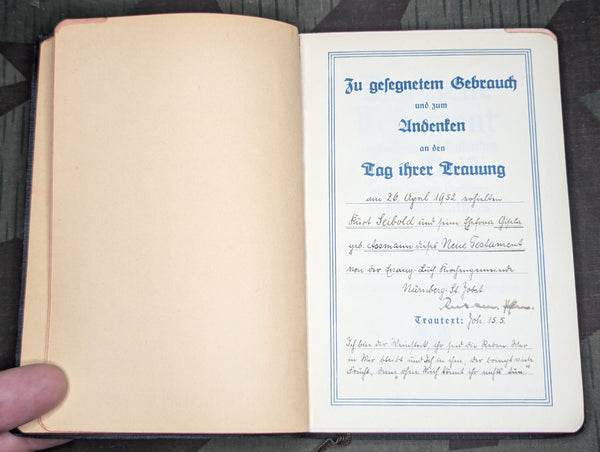 Zu gesegnetem Gebrauch
und zum
Andenken
an den
Tag ihrer Trauung
am 26. April 1952 erhielten
Kurt Seibold und seine Ehefrau Gisela
geb. Assmann dieses Neue Testament
von der Evang-Luth Kirchengemeinde
Nürnberg-St. Jobst
Trautext: Joh. 15.5.
Ich bin der Weinstock, ihr seid die Reben. Wer
in Mir bleibt und Ich in ihm, der bringt viele
Frucht, denn "ohne Mich könnt ihr nichts tun"